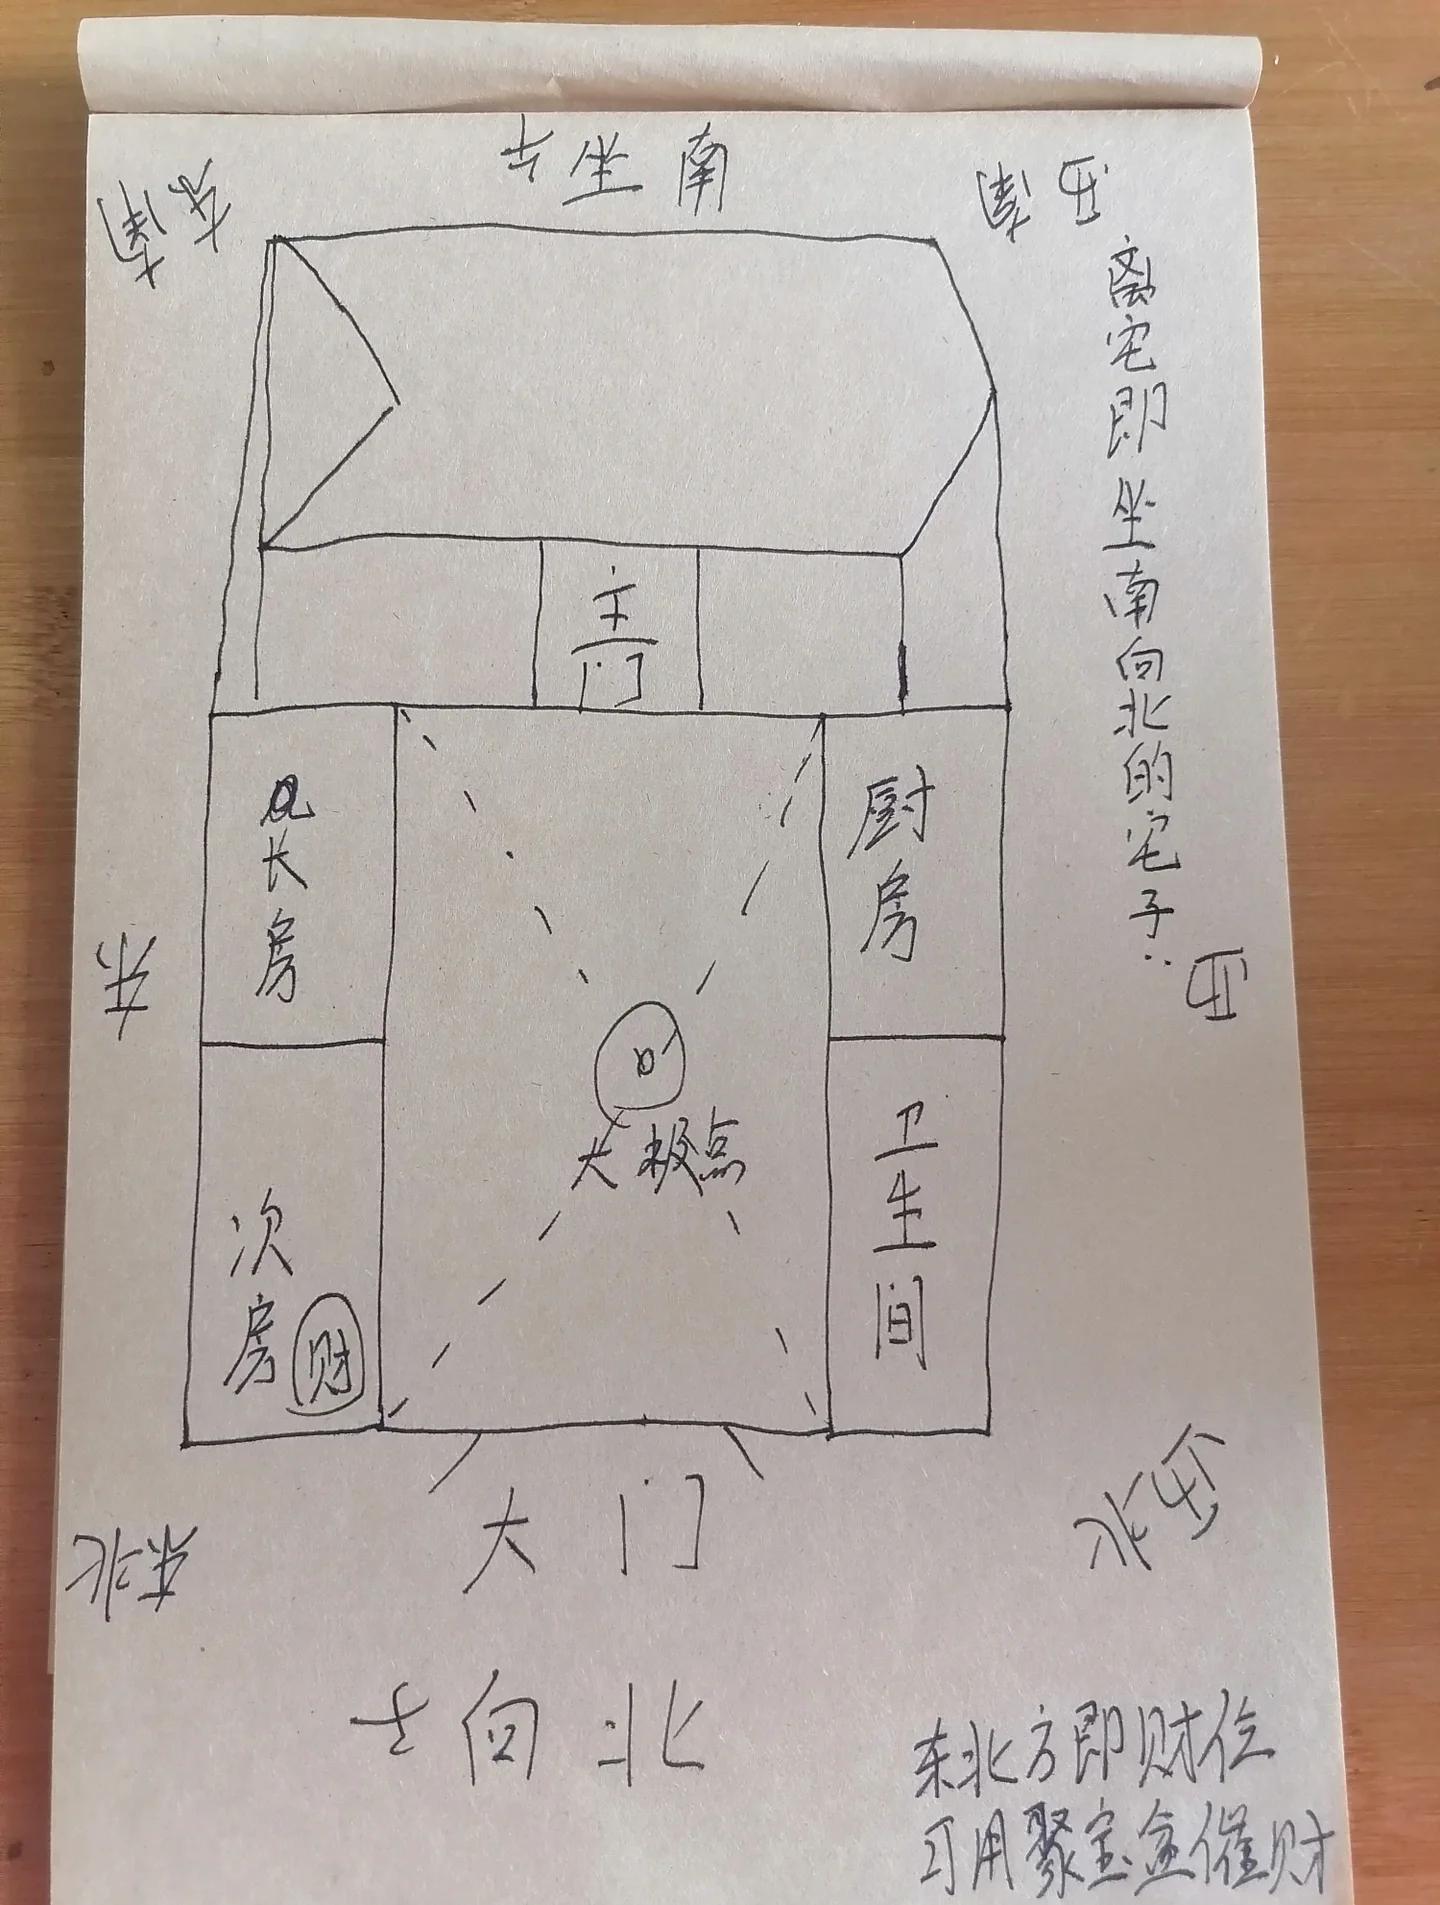 坐南
东南
西南
离宅即坐南向北的宅子:
主门
长房
厨房
东
西
太极点
卫生间
次房
财
大门
东北
西北
向北
东北方即财位
可用聚宝盒催财